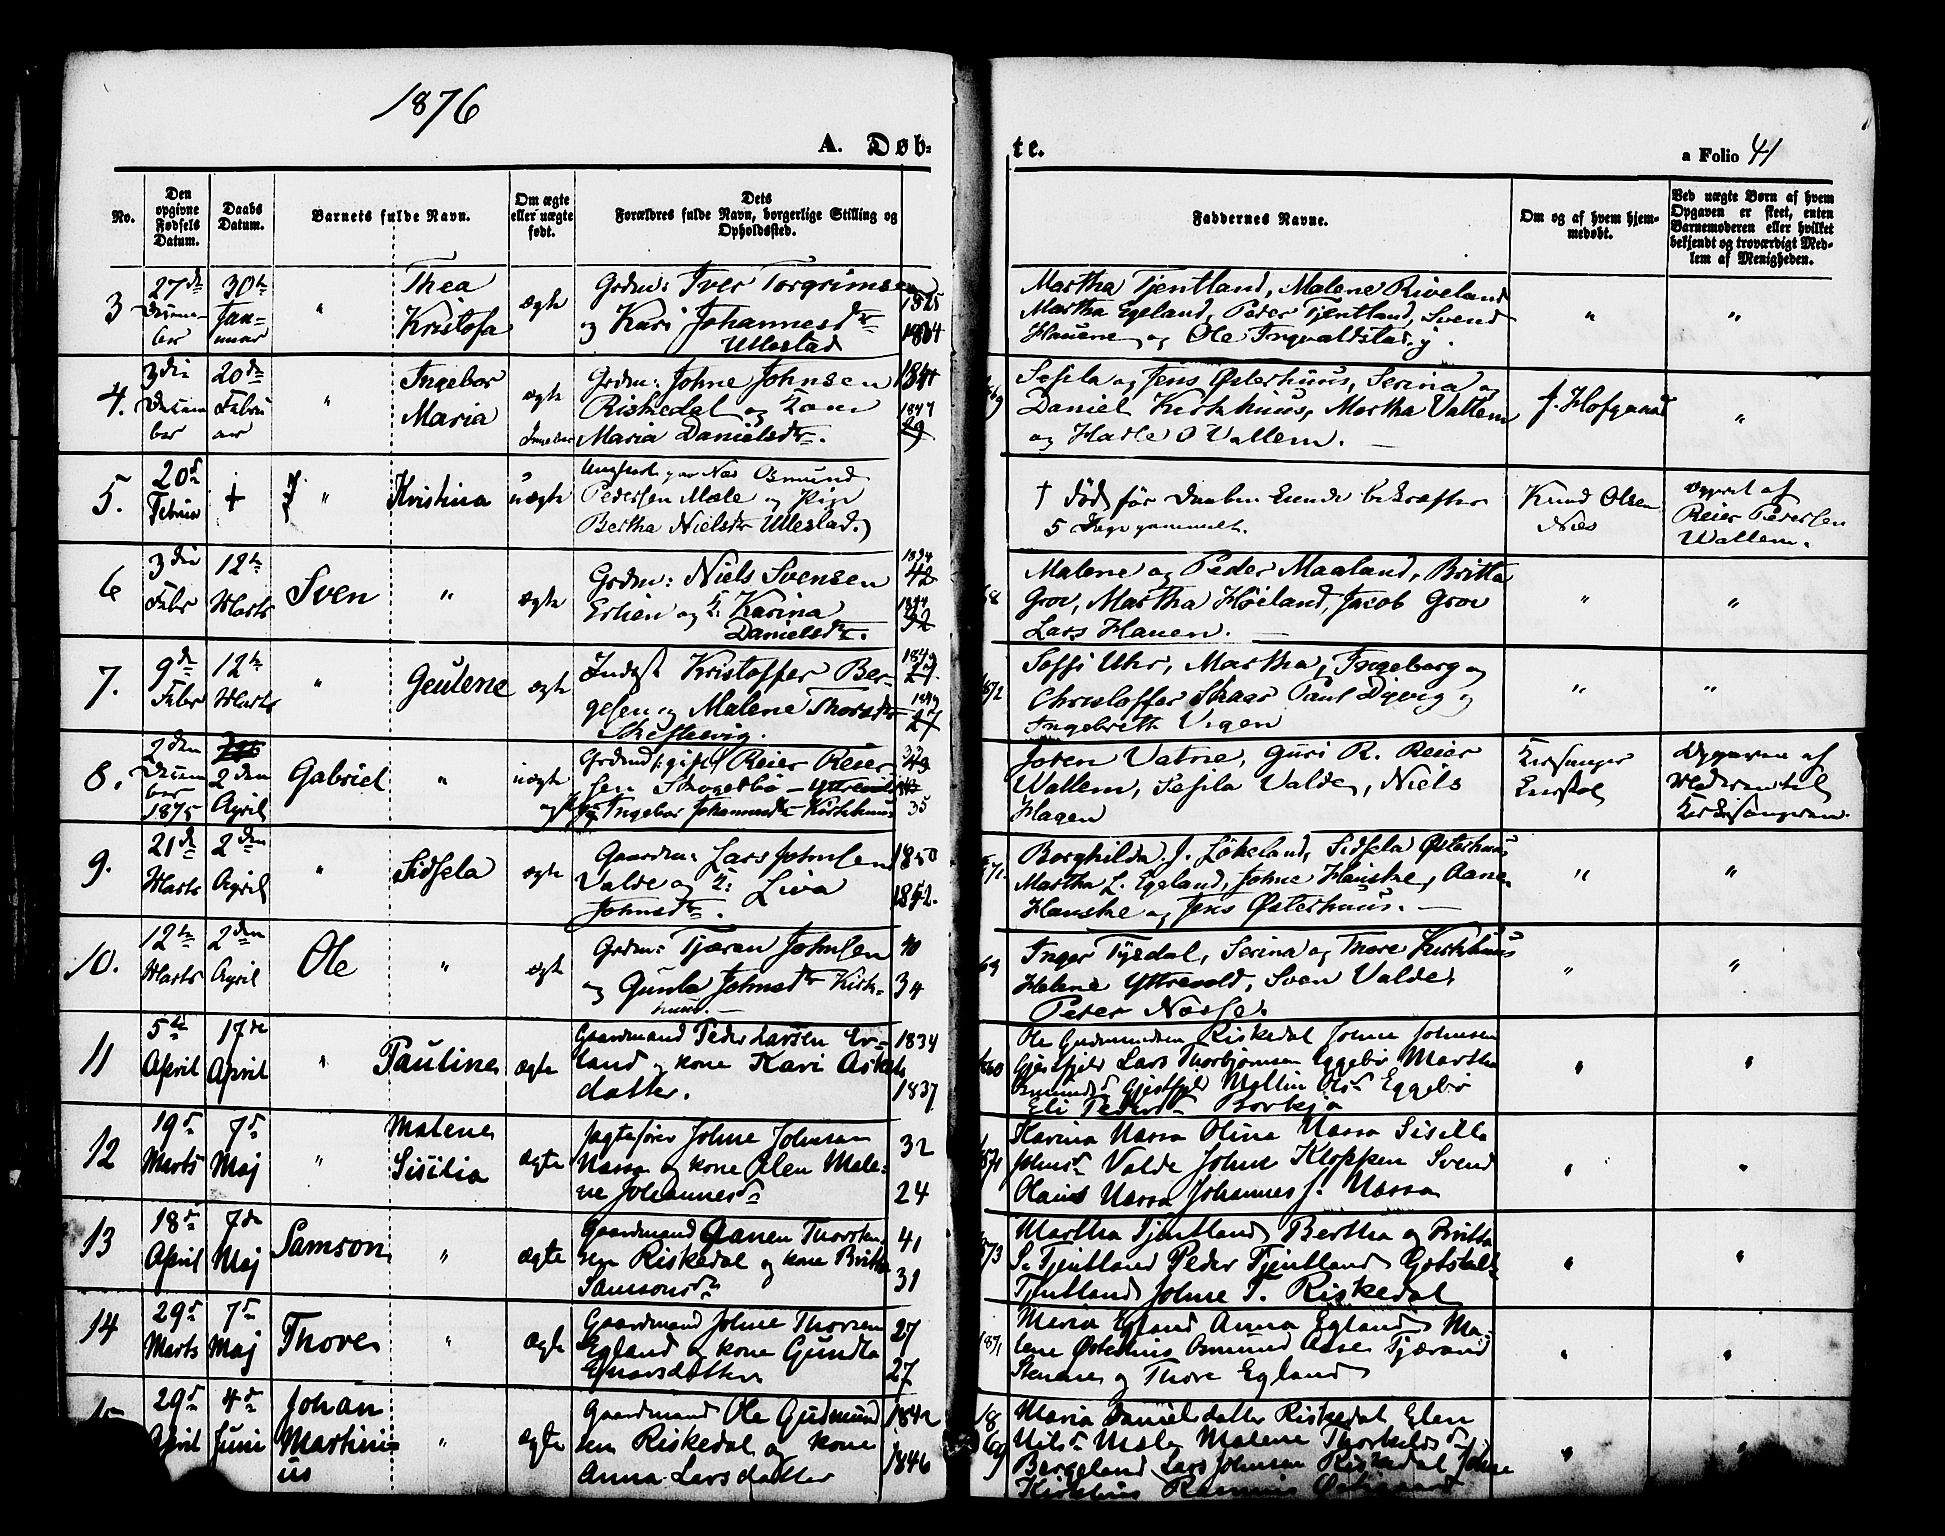 1876
A. Døb-
te.
a Folio 41
No.
Den
opgivne
Fødsels
Datum.
Daabs
Datum.
Barnets fulde Navn.
Om ægte
eller uægte
født.
Dets
Forældres fulde Navn, borgerlige Stilling og
Opholdssted.
Faddernes Navne.
Om og af hvem hjem-
medøbt.
Ved uægte Børn af hvem
Opgaven er skeet, enten
Barnemoderen eller hvilket
bekjendt og troværdigt Med-
lem af Menigheden.
3
27de
Decem-
ber
30te
Jan-
uar
"
Thea
Kristofa
ægte
Grdm: Iver Torgrimsen
og Kari Johannesdtr
Ullestad
1825
1834
Martha Tjentland, Malene Riveland
Martha Egeland, Peder Tjentland, Svend
Hauene og Ole Ingvaldstad
"
"
4.
3die
Decem
ber
20de
Febru
ar
"
Ingebor
Maria
ægte
Grdm: Johne Johnsen
Riskedal og
Maria Danielsdtr.
1847
Sesila og Jens Østerhuus, Serina og
Daniel Kirkhuus, Martha Vallem
og O Vallem.
J. Hofgaard
"
5.
20d
Februar
+
"
Kristina
uægte
Osmund
Pedersen Mæle og Pige
Bertha Nielsdtr Ullestad.
† Død før Daaben kunde bekræftes
5 Dage gammelt.
Knud Olsen
Næs
Opgivet af
Reier Pedersen
Wallem.
6
3die
Febr
12te
Marts
Sven
"
ægte
Grdm: Niels Svensen
Erlien og K: Karina
Danielsdtr.
1834
42
1844
32
Malene og Peder Maaland, Britta
Grov, Martha Høieland, Jacob Grov
Lars Hauen.
"
"
7.
9de
Febr
12te
Marts
"
Geulene
ægte
Indst Kristoffer Ber-
gesen og Malene Thorsdtr
1849
27.
1849
27
Soffi Uhr, Martha, Ingeborg og
Christoffer Skaar Paul Digvig og
Ingebreth Vigen
"
"
8.
2den
Decem
ber
1875
2den
April
Gabriel
"
uægte
Grdmd (gift) Reier Reier
sen Skogesbø
Ingebor Johannesdtr Kirkhuus
35
Joren Vatne, Guri R. Reier
Wallem, Sesila Valde, Niels
Hagen
Kirkesanger
Enestol
Opgaven af
Moderen til
Kirkesangeren.
9.
21de
Marts
2den
April
"
Sidsela
ægte
Gaardm: Lars Johnsen
Valde og K: Liva
Johnsdtr.
1850
1852.
Borghilda J. Løkeland, Sidsela Østerhuus
Martha L. Egeland, Johne Hauske, Aane
Hauske og Jens Østerhuus.
"
"
10.
12te
Marts
2den
April
Ole
"
ægte
Grdm: Tjæran Johnsen
og Gunla Johnsdtr Kirk-
huus.
40
34
69
Inger Tysdal, Serina og Thore Kirkhuus
Helene Yttrevold, Sven Valde
Peter Næsse.
"
"
11
5te
April
17de
April
"
Pauline
ægte
Gaardmand Peder Larsen Er-
land og kone Kari Aslak
datter.
1834
1837
Ole Gudmundsen Riskedal Johne Johnsen
Gjestfjeld Lars Thorbjørnsen Eggebø Martha
Osmundsd Gjestfjeld Mallin Olsd Eggebø
Eli Pedersd
"
"
12
19d
Marts
7d
Maj
"
Malene
Sisilia
ægte
Jagtefører Johne Johnsen
Næssa og kone Elen Male-
ne Johannesd
32
24
Karina Næssa Olina Næssa Sisilla
Johnsd Valde Johne Kloppen Svend
Olaius Næssa Johannes J. Næssa
"
"
13
18d
April
7de
Maj
Samson
"
ægte
Gaardmand Aanen Thorsten
sen Riskedal og kone Britta
Samsonsd
41
31
Martha Tjentland Bertha og Britta
P. Tjentland Peder Tjentland Gotskalk
Tjentland Johne T. Riskedal
"
"
14
29d
Marts
7d
Maj
Thore
"
ægte
Gaardmand Johne Thorsen
Egland og kone Gundla
27
27
1871
Maria Egland Anna Egland Ma-
lene Østerhus Osmund Aase Tjærand
og Thore Egland
"
"
29d
April
4d
Juni
Johan
Martini-
us
"
ægte
Gaardmand Ole Gudmund
sen Riskedal og kone
Anna Larsdatter
1842
1846
18
69
Maria Danielsdatter Riskedal Elen
Nilsd Mæle Malene Thorkildsd
Bergeland Lars Johnsen Riskedal Johne
Kirkhus Rasmus
"